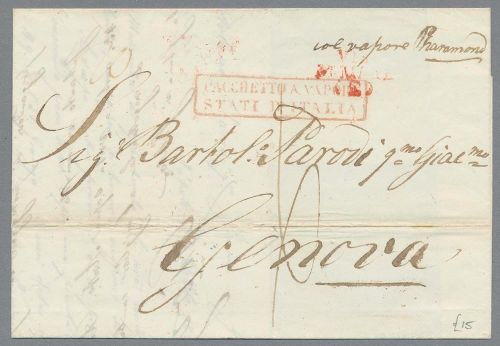 col vapore Pharamond
PACCHETTO A VAPORE
STATI D'ITALIA
Sig.r Bartol.o Parodi q.mo Giac.mo
Genova
£15